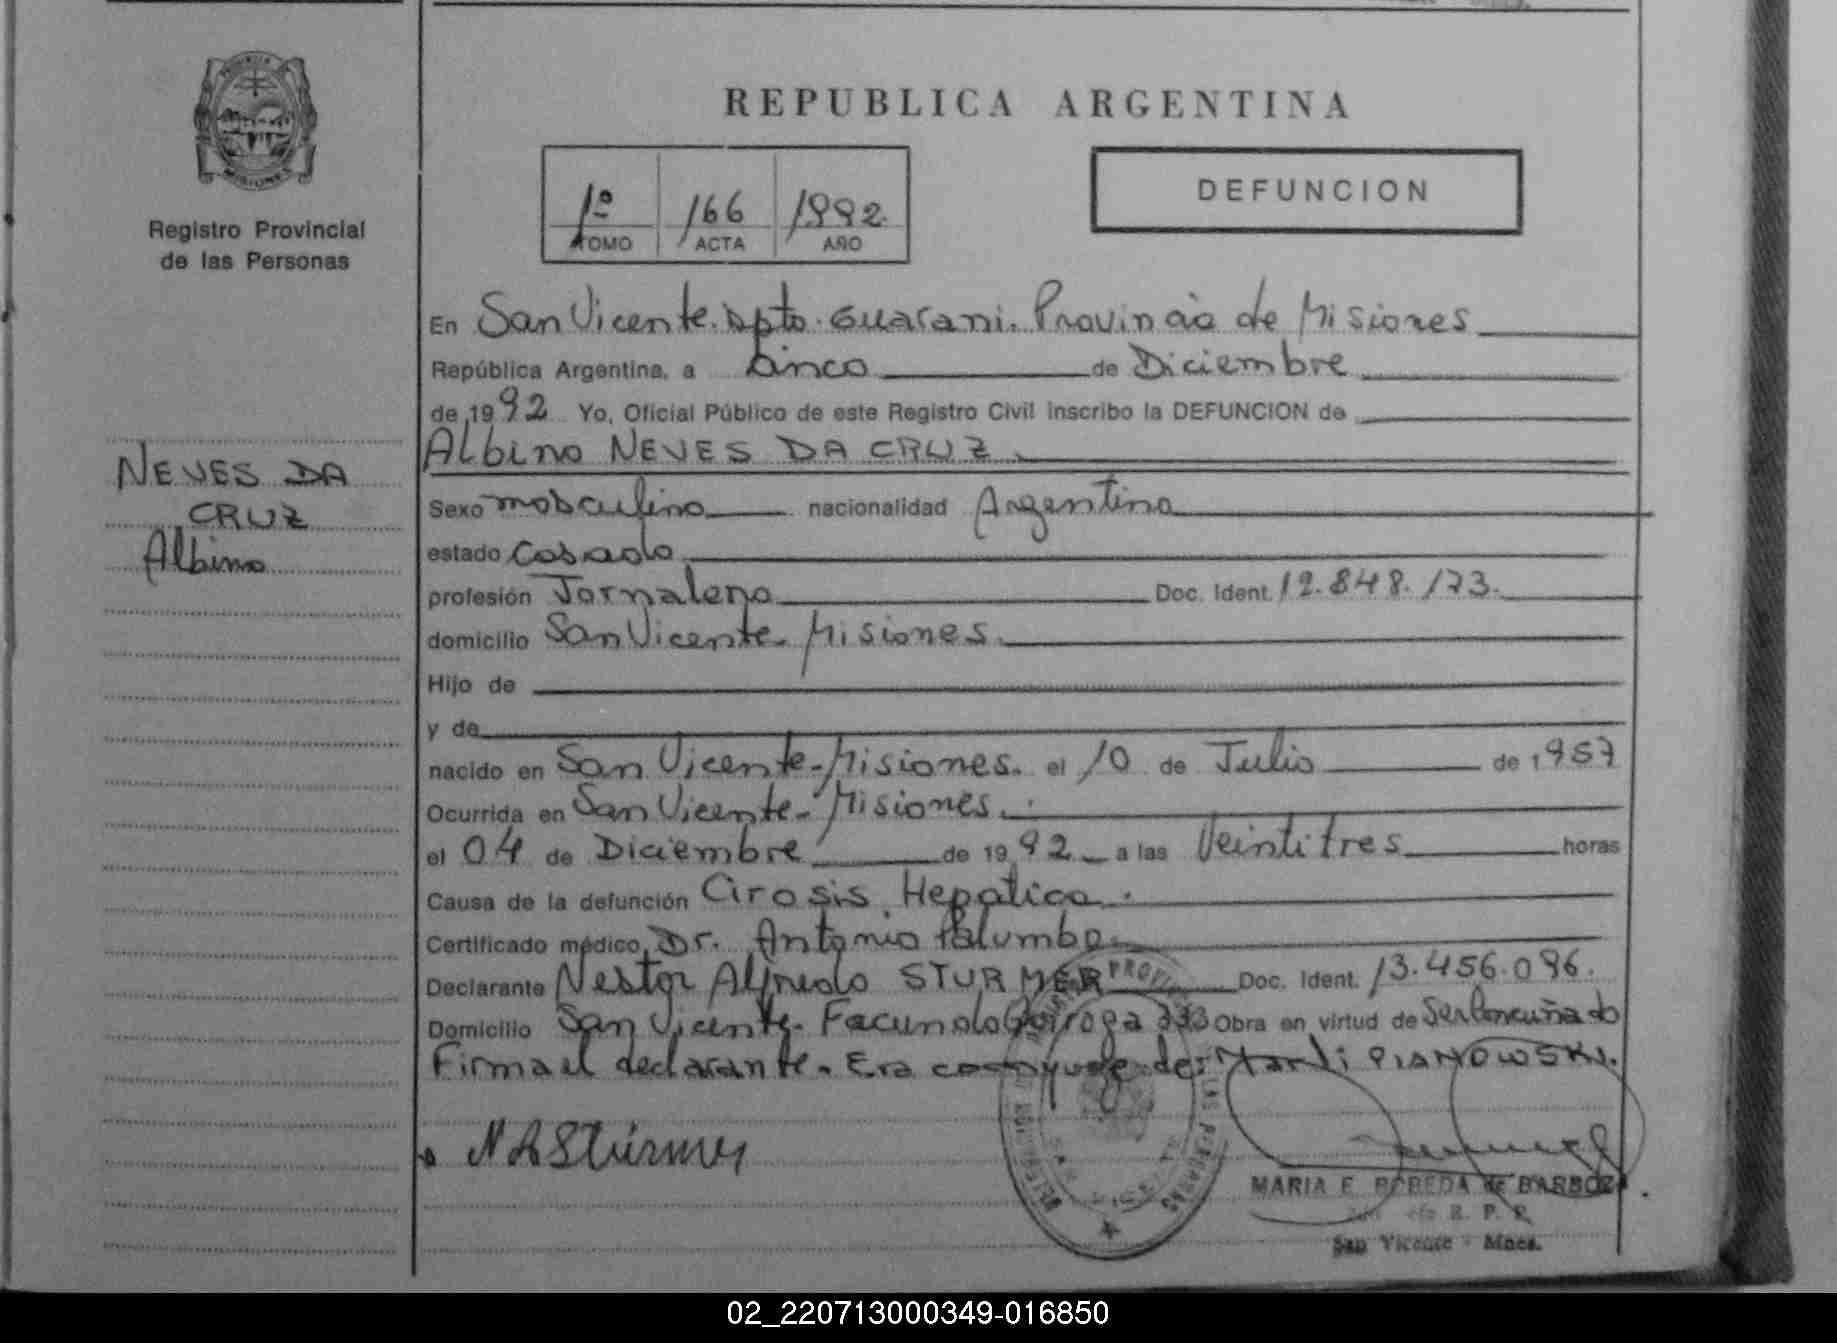 REPUBLICA ARGENTINA
PROVINCIA
MISIONES
Registro Provincial
de las Personas
1º 166 1992
TOMO ACTA AÑO
DEFUNCION
En San Vicente. Dpto. Guarani. Provincia de Misiones
República Argentina, a Cinco de Diciembre
de 1992 Yo, Oficial Público de este Registro Civil inscribo la DEFUNCION de
Albino NEVES DA CRUZ
NEVES DA
CRUZ
Albino
Sexo masculino nacionalidad Argentina
estado Casado
profesión Jornalero Doc. Ident. 12.848.173.
domicilio San Vicente. Misiones.
Hijo de
y de
nacido en San Vicente-Misiones. el 10 de Julio de 1957
Ocurrida en San Vicente-Misiones.
el 04 de Diciembre de 1992 a las Veintitres horas
Causa de la defunción Cirosis Hepatica.
Certificado médico, Dr. Antonio Palumbo
Declarante Nestor Alfredo STURMER Doc. Ident. 13.456.096.
Domicilio San Vicente. Facundo Obra en virtud de Ser Concuñado
Firma el declarante. Era conyuge de: PIANOWSKI.
N A Stürmer
MARIA E. DE BARBOZA
R. P. P.
San Vicente - Mnes.
02_220713000349-016850